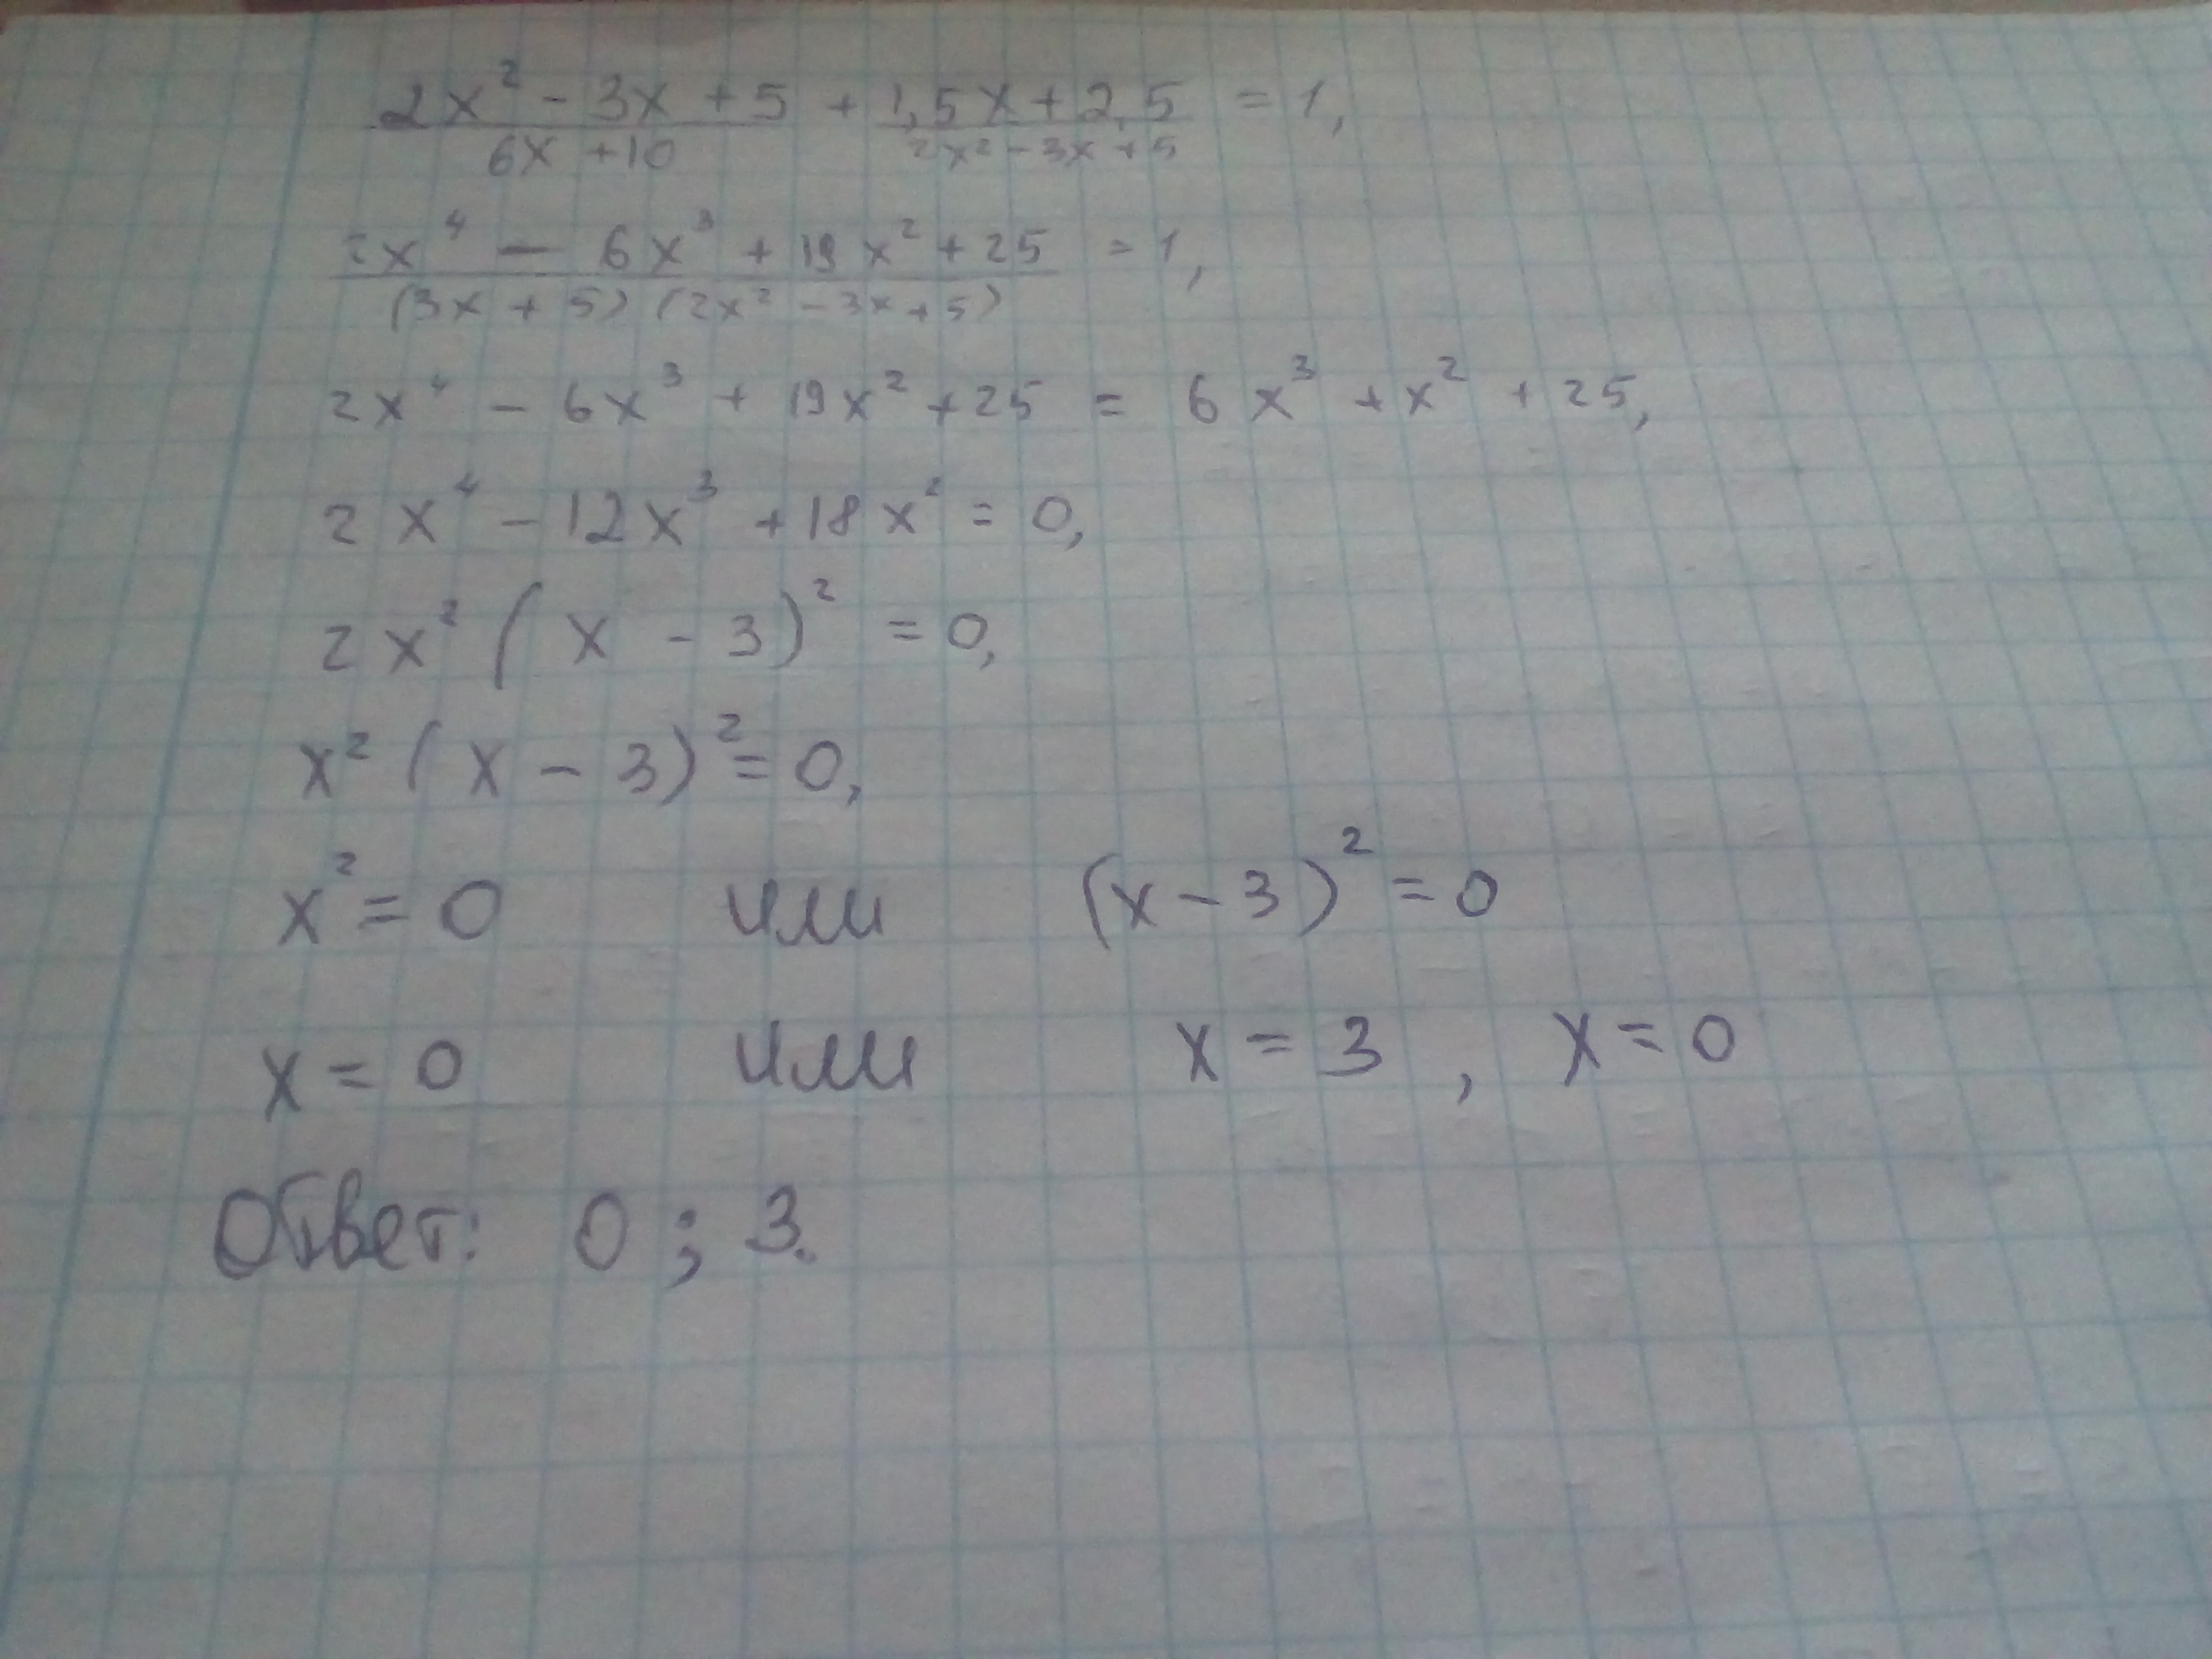 (2x² - 3x + 5)/(6x + 10) + (1,5x + 2,5)/(2x² - 3x + 5) = 1,
(2x⁴ - 6x³ + 19x² + 25)/((3x + 5)(2x² - 3x + 5)) = 1,
2x⁴ - 6x³ + 19x² + 25 = 6x³ + x² + 25,
2x⁴ - 12x³ + 18x² = 0,
2x²(x - 3)² = 0,
x²(x - 3)² = 0,
x² = 0 или (x - 3)² = 0
x = 0 или x = 3, x = 0
Ответ: 0; 3.